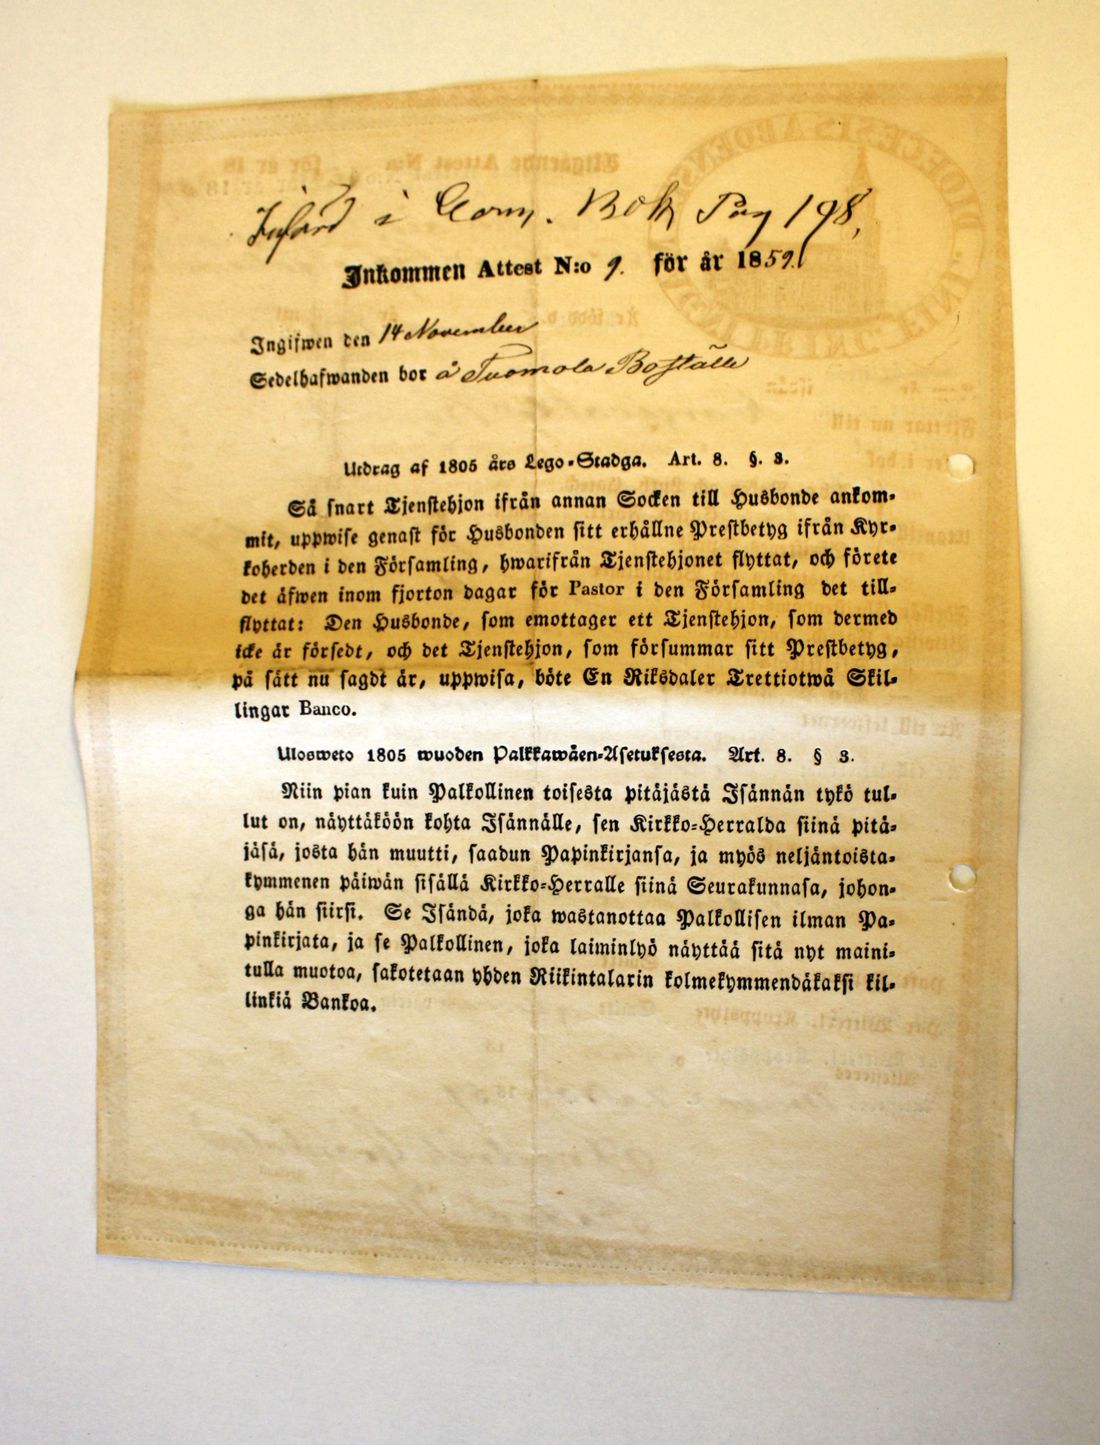 Införd i Comm. Bok Pag 198,
Inkommen Attest N:o 9. för år 1859.
Ingifwen den 14 November
Sedelhafwanden bor å Tuomola Boställe
Utdrag af 1805 års Lego-Stadga. Art. 8. §. 3.
Så snart Tjenstehjon ifrån annan Socken till Husbonde ankom-
mit, uppwise genast för Husbonden sitt erhållne Prestbetyg ifrån Kyr-
koherden i den Församling, hwarifrån Tjenstehjonet flyttat, och förete
det äfwen inom fjorton dagar för Pastor i den Församling det till-
flyttat: Den Husbonde, som emottager ett Tjenstehjon, som dermed
icke är försedt, och det Tjenstehjon, som försummar sitt Prestbetyg,
på sätt nu sagdt är, uppwisa, böte En Riksdaler Trettiotwå Skil-
lingar Banco.
Ulosweto 1805 wuoden Palkkawäen-Asetuksesta. Art. 8. § 3.
Niin pian kuin Palkollinen toisesta pitäjästä Isännän tykö tul-
lut on, näyttäköön kohta Isännälle, sen Kirkko-Herralda siinä pitä-
jäsä, josta hän muutti, saadun Papinkirjansa, ja myös neljäntoista-
kymmenen päiwän sisällä Kirkko-Herralle siinä Seurakunnasa, johon-
ga hän siirsi. Se Isändä, joka wastanottaa Palkollisen ilman Pa-
pinkirjata, ja se Palkollinen, joka laiminlyö näyttää sitä nyt maini-
tulla muotoa, sakotetaan yhden Riikintalarin kolmekymmendäkaksi kil-
linkiä Bankoa.